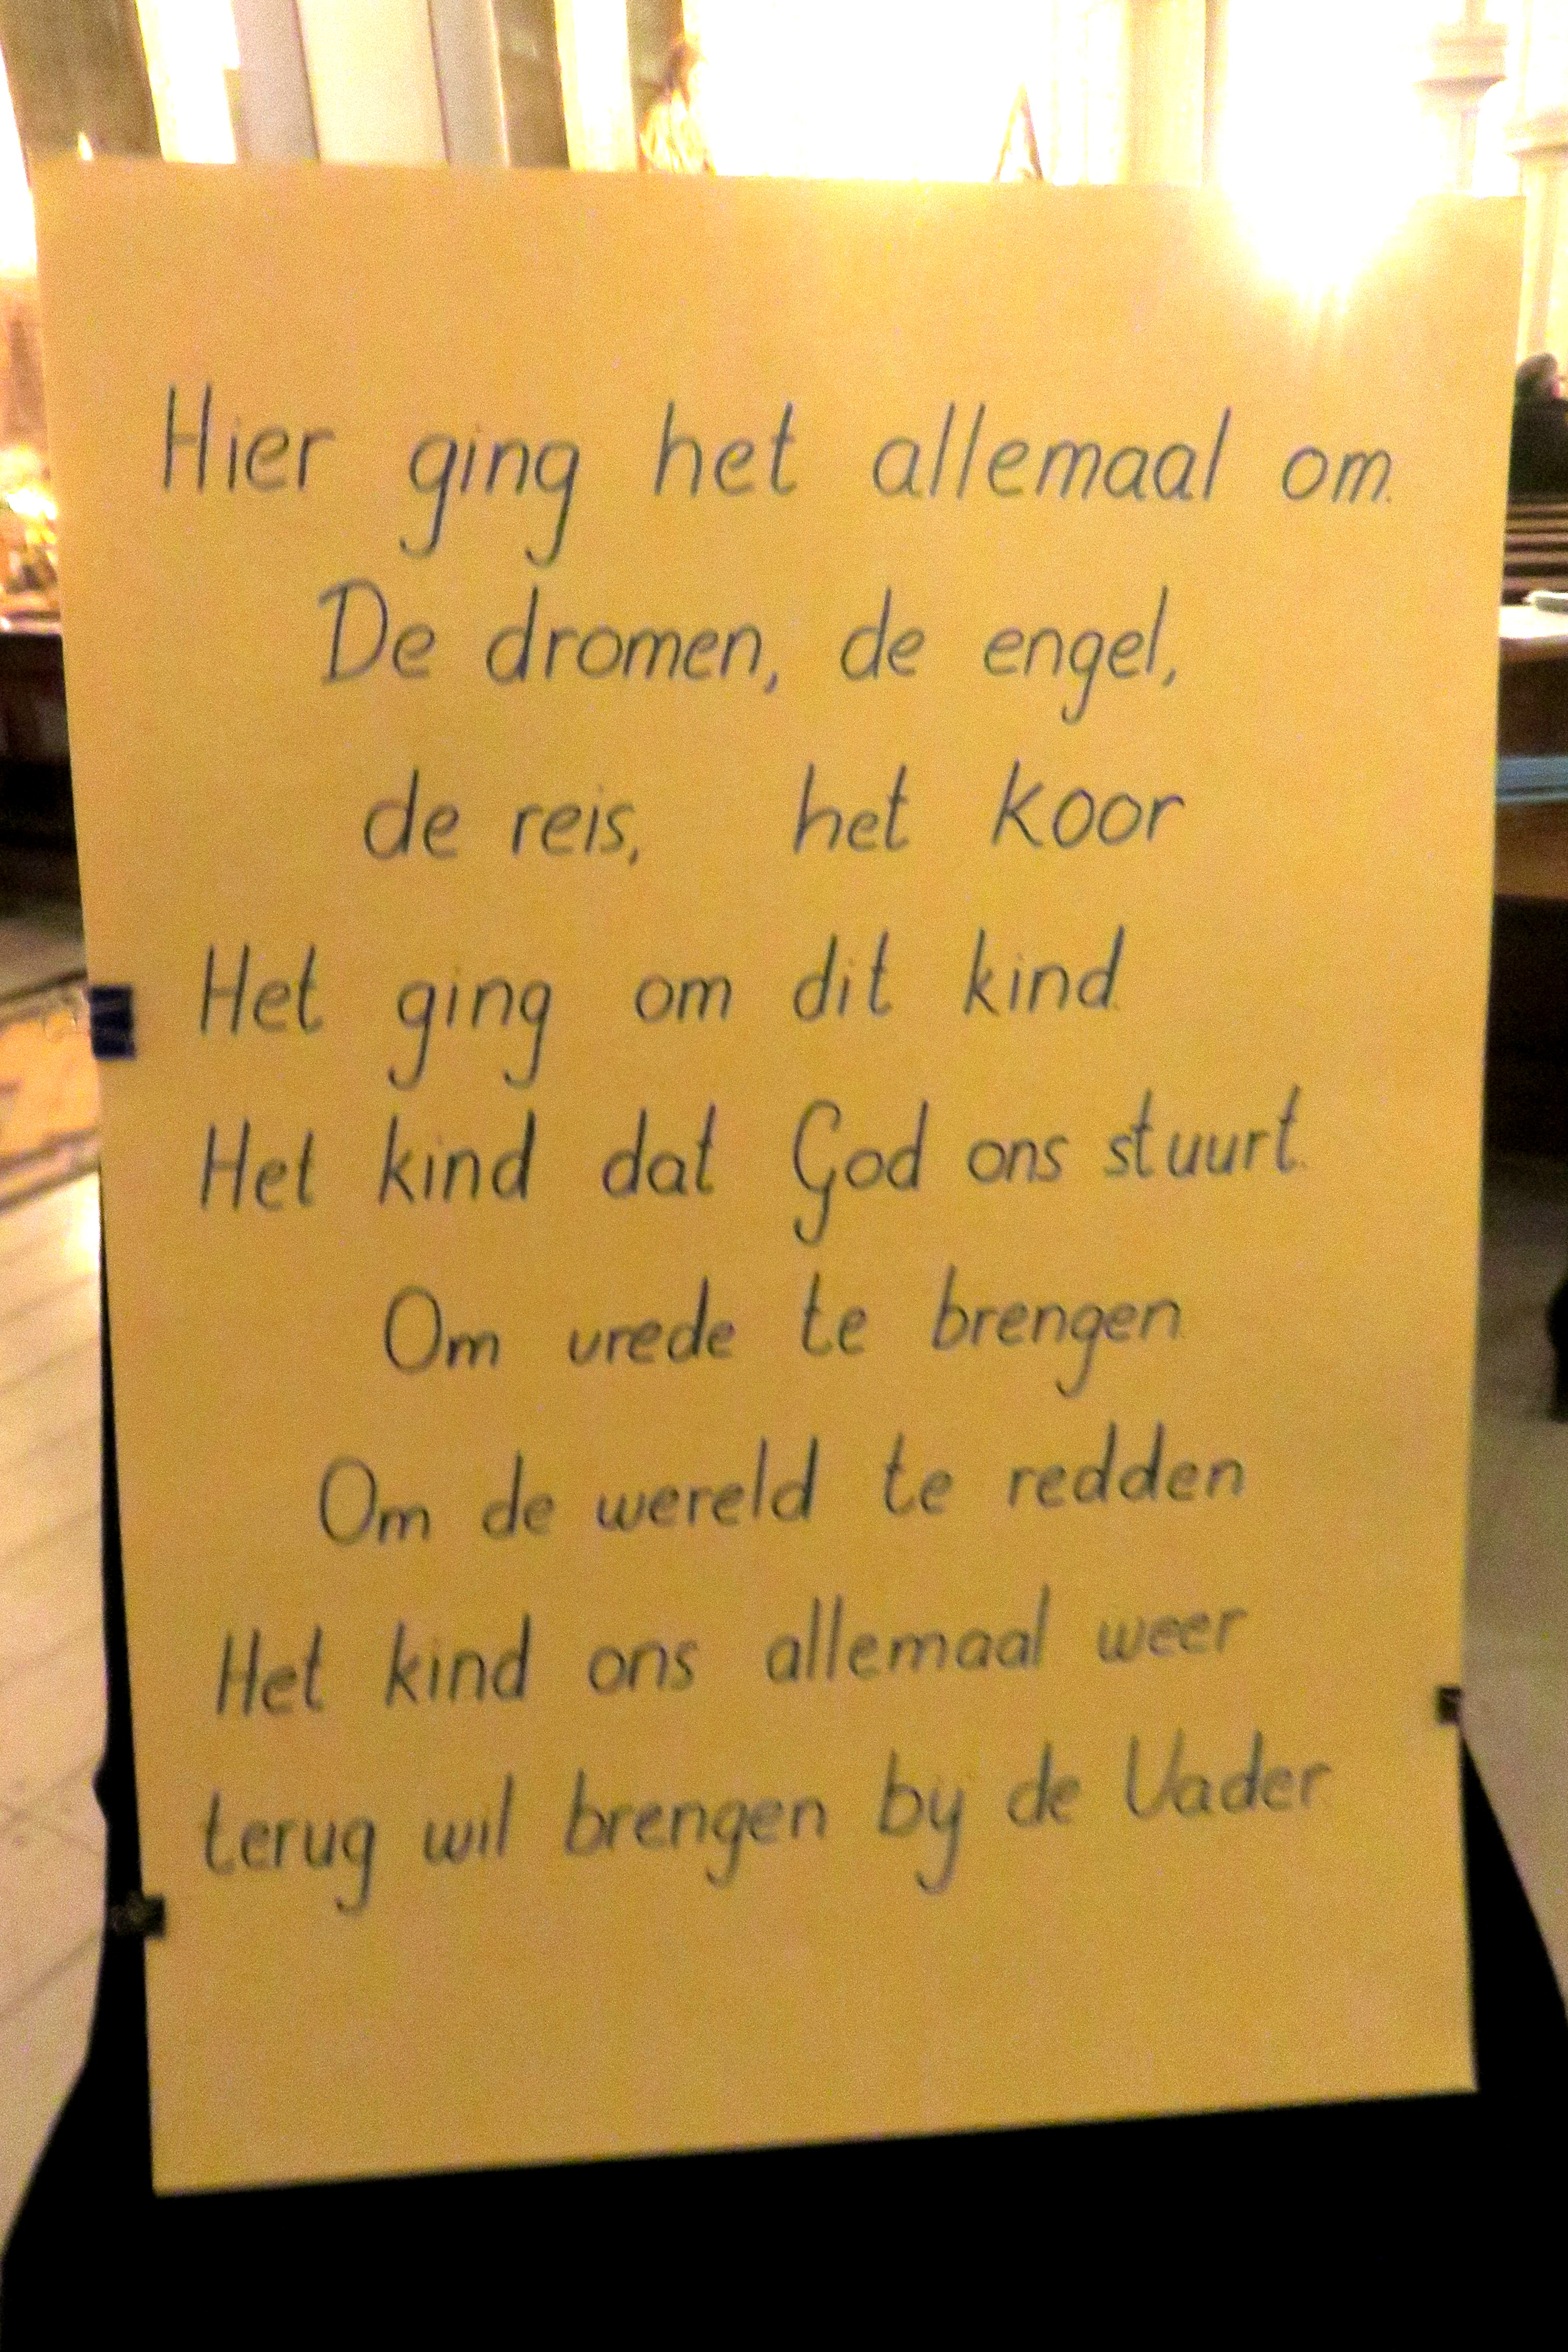 Hier ging het allemaal om.
De dromen, de engel,
de reis, het koor
Het ging om dit kind.
Het kind dat God ons stuurt.
Om vrede te brengen.
Om de wereld te redden
Het kind ons allemaal weer
terug wil brengen bij de Vader